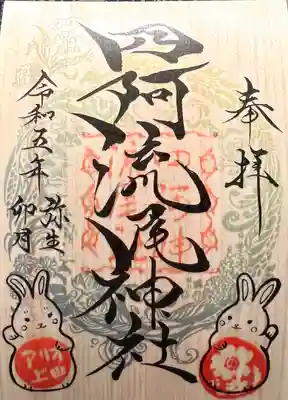 奉拝
四阿流尾神社
令和五年
弥生
卯月
アリオ
上田